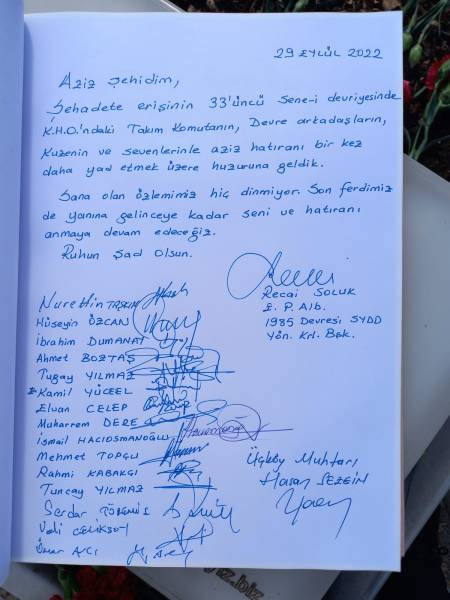 29 EYLÜL 2022
Aziz Şehidim,
Şehadete erişinin 33'üncü sene-i devriyesinde
K.H.O.'ndaki Takım Komutanın, Devre arkadaşların,
Kuzenin ve sevenlerinle aziz hatıranı bir kez
daha yad etmek üzere huzuruna geldik.
Sana olan özlemimiz hiç dinmiyor. Son ferdimiz
de yanına gelinceye kadar seni ve hatıranı
anmaya devam edeceğiz.
Ruhun Şad Olsun.
Recai SOLUK
E. P. Alb.
1985 Devresi SYDD
Yön. Krl. Bşk.
Nurettin TAŞKIN
Hüseyin ÖZCAN
İbrahim DUMANAT
Ahmet BOZTAŞ
Tugay YILMAZ
Kamil YÜCEEL
Elvan CELEP
Muharrem DERE
İsmail HACIOSMANOĞLU
Mehmet TOPÇU
Rahmi KABAKÇI
Tuncay YILMAZ
Serdar
Veli ÇELİKSOY
Ömer AVCI
Üçköy Muhtarı
Hasan SEZGİN